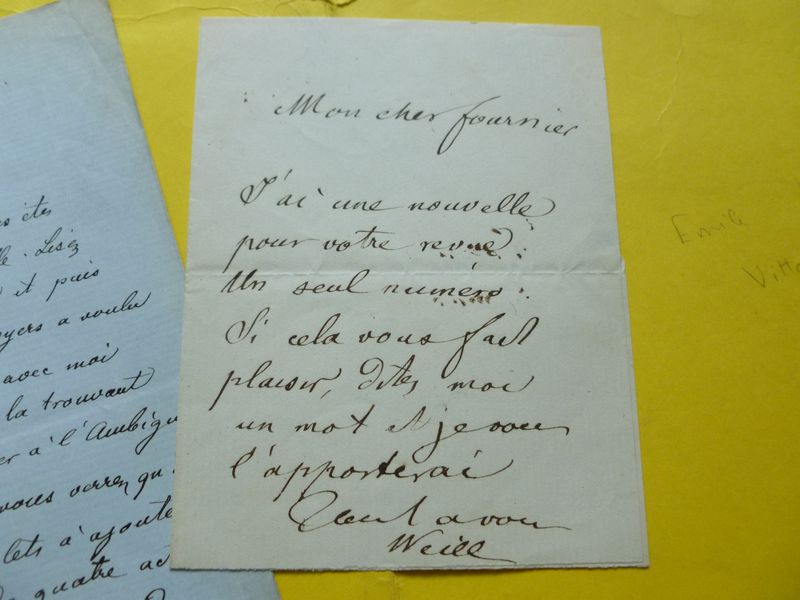 Mon cher fournier
J'ai une nouvelle
pour votre revue.
Un seul numéro.
Si cela vous fait
plaisir, dites moi
un mot et je vous
l'apporterai
tout a vous
Weill
êtes
Lisez
et puis
a voulu
avec moi
la trouvant
à l'Ambigu
vous verrez qu
à ajoute
quatre ac
Emile
Vitto